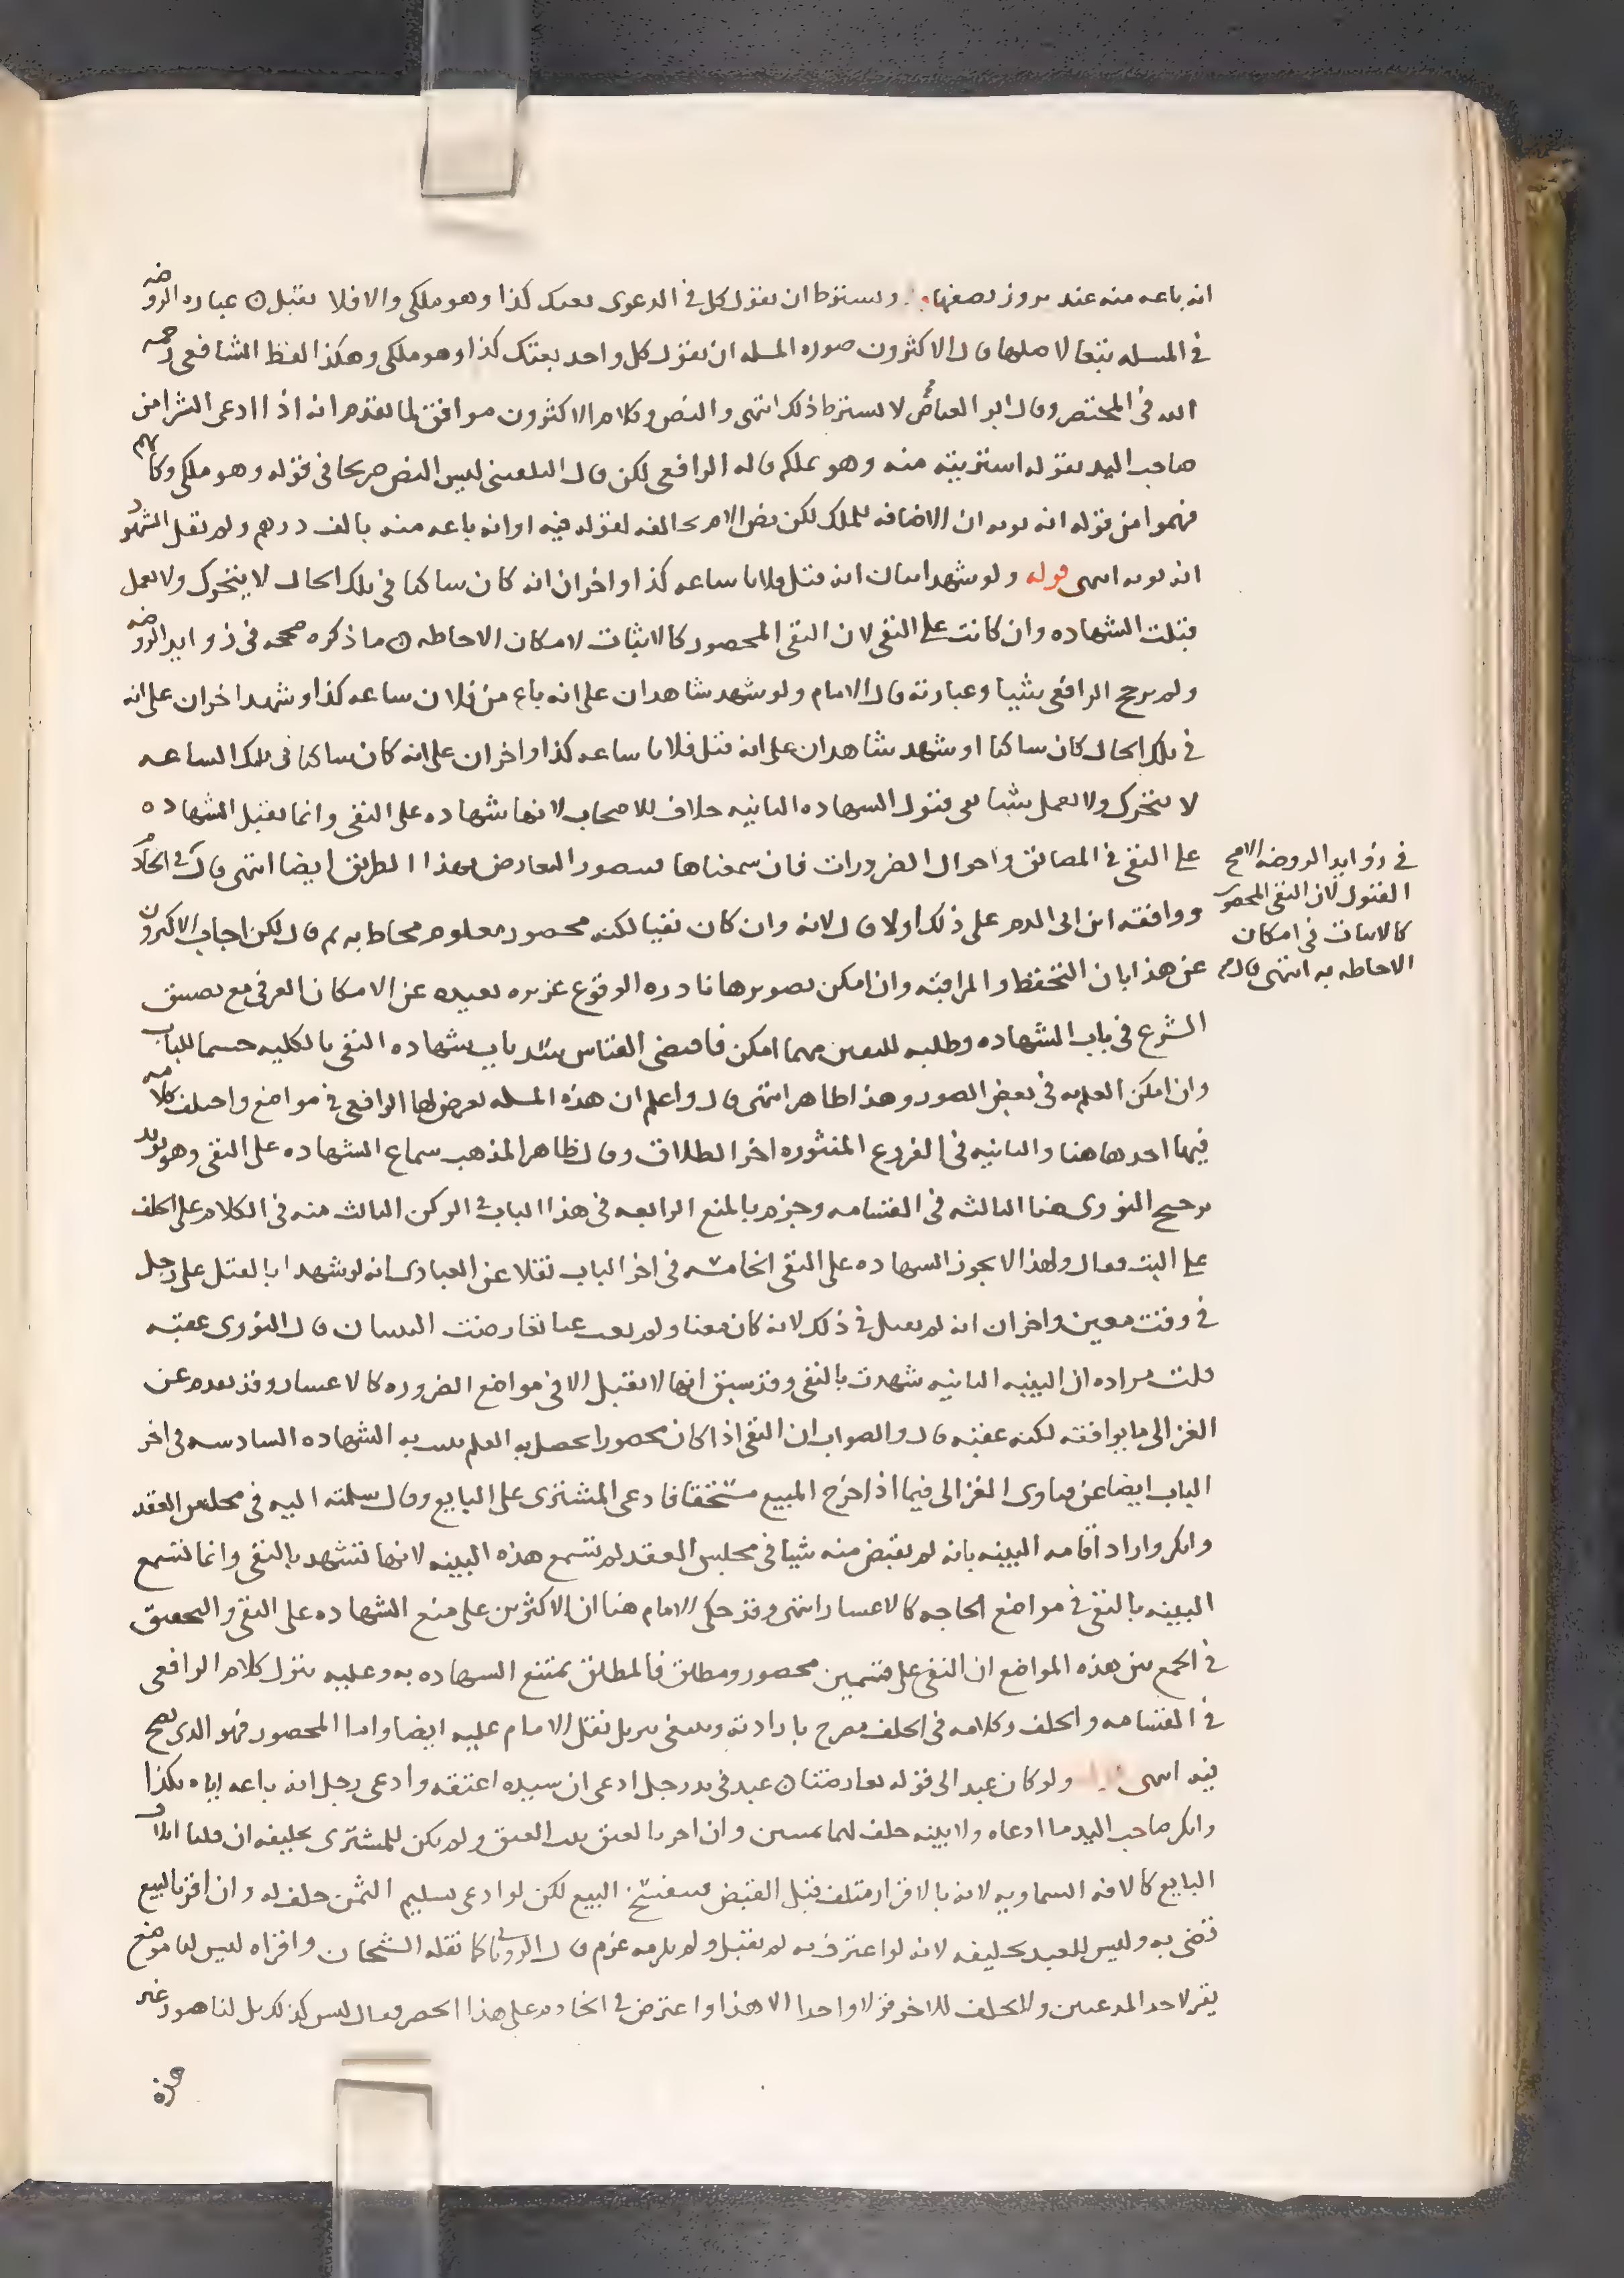 انه باعه منه عند بروز نصفها ويشترط ان يقول كل في الدعوى بعتك كذا وهو ملكي والا فلا يقبل عباره الروضه
في المسله تبعا لاصلها قال الاكثرون صوره المسله ان يقول كل واحد بعتك كذا وهو ملكي وهكذا لفظ الشافعي رحمه
الله في المختصر وقال ابو العياض لا يشترط ذلك انتهى والنص وكلام الاكثرون موافق لما تقدم انه اذا ادعى الشرا من
صاحب اليد يقوله اشتريته منه وهو يملكه قاله الرافعي لكن قال البلقيني ليس النص صريحا في قوله وهو ملكي وكانهم
فهموا من قوله انه ثوبه ان الاضافه للملك لكن نص الام يخالفه لقوله فيه او انه باعه منه بالف درهم ولم تقل الشهود
انه ثوبه انتهى قوله ولو شهد اثنان انه قتل فلانا ساعه كذا واخران انه كان ساكنا في تلك الحال لا يتحرك ولا يعمل
قبلت الشهاده وان كانت على النفي لان النفي المحصور كالاثبات لامكان الاحاطه ما ذكره صححه في زوايد الروضه
ولم يرجح الرافعي شيا وعبارته قال الامام ولو شهد شاهدان على انه باع من فلان ساعه كذا وشهد اخران على انه
في تلك الحال كان ساكتا او شهد شاهدان على انه قتل فلانا ساعه كذا واخران على انه كان ساكنا في تلك الساعه
لا يتحرك ولا يعمل شيا ففي قبول الشهاده الثانيه خلاف للاصحاب لانها شهاده على النفي وانما تقبل الشهاده
على النفي في المضائق واحوال الضرورات فان سمعناها فيتصور التعارض بهذا الطريق ايضا انتهى قال في الخادم
في زوايد الروضه الاصح
القبول لان النفي المحصور
كالاثبات في امكان
الاحاطه به انتهى قال م
ووافقه ابن ابي الدم على ذلك اولا قال لانه وان كان نفيا لكنه محصور معلوم محاط به ثم قال لكن اجاب الاكثرون
عن هذا بان التحفظ والمراقبه وان امكن تصويرها نادره الوقوع عزيزه بعيده عن الامكان العرفي مع تضييق
الشرع في باب الشهاده وطلبه لليقين مهما امكن فاقتضى القياس سد باب شهاده النفي بالكليه حسما للباب
وان امكن العلم به في بعض الصور وهذا ظاهر انتهى قال واعلم ان هذه المسله تعرض لها الرافعي في مواضع واختلف كلامه
فيها احدها هنا والثانيه في الفروع المنثوره اخر الطلاق وقال ظاهر المذهب سماع الشهاده على النفي وهو يويد
ترجيح النووي هنا الثالثه في القسامه وجزم بالمنع الرابعه في هذا الباب في الركن الثالث منه في الكلام على الحلف
على البت فقال ولهذا لا يجوز الشهاده على النفي الخامسه في اخر الباب نقلا عن العبادي انه لو شهدا بالقتل على رجل
في وقت معين واخران انه لم يقتل في ذلك لانه كان معنا ولم يغب عنا تعارضت البينتان قال النووي عقبه
قلت مراده ان البينه الثانيه شهدت بالنفي وقد سبق انها لا تقبل الا في مواضع الضروره كالاعسار وقد تقدم عن
الغزالي ما يوافقه لكنه عقبه قال والصواب ان النفي اذا كان محصورا يحصل به العلم يثبت به الشهاده السادسه في اخر
الباب ايضا عن فتاوى الغزالي فيما اذا خرج المبيع مستحقا فادعى المشتري على البايع وقال سلمته اليه في مجلس العقد
وانكر واراد اقامه البينه بانه لم يقبض منه شيا في مجلس العقد لم تسمع هذه البينه لانها تشهد بالنفي وانما تسمع
البينه بالنفي في مواضع الحاجه كالاعسار انتهى وقد حكى الامام هنا ان الاكثرين على منع الشهاده على النفي والتحقيق
في الجمع بين هذه المواضع ان النفي على قسمين محصور ومطلق فالمطلق يمتنع الشهاده به وعليه ينزل كلام الرافعي
في القسامه والحلف وكلامه في الحلف مصرح بارادته وينبغي تنزيل نقل الامام عليه ايضا واما المحصور فهو الذي يصح
فيه انتهى ولو كان عبد الى قوله تعارضتا عبد في يد رجل ادعى ان سيده اعتقه وادعى رجل انه باعه اياه بكذا
وانكر صاحب اليد ما ادعاه ولا بينه حلف لهما يمينين وان اقر بالعتق ثبت العتق ولم يكن للمشتري تحليفه ان قلنا اتلاف
البايع كالافه السماويه لانه بالاقرار متلف قبل القبض فينفسخ البيع لكن لو ادعى تسليم الثمن حلف له وان اقر بالبيع
قضى به وليس للعبد تحليفه لانه لو اعترف به لم يقبل ولم يلزمه غرم قال الروياني كما نقله الشيخان واقراه ليس لنا موضع
يقر لاحد المدعيين ولا يحلف للاخر قولا واحدا الا هذا واعترض في الخادم على هذا الحصر فقال ليس كذلك بل لنا صور غير
هذه